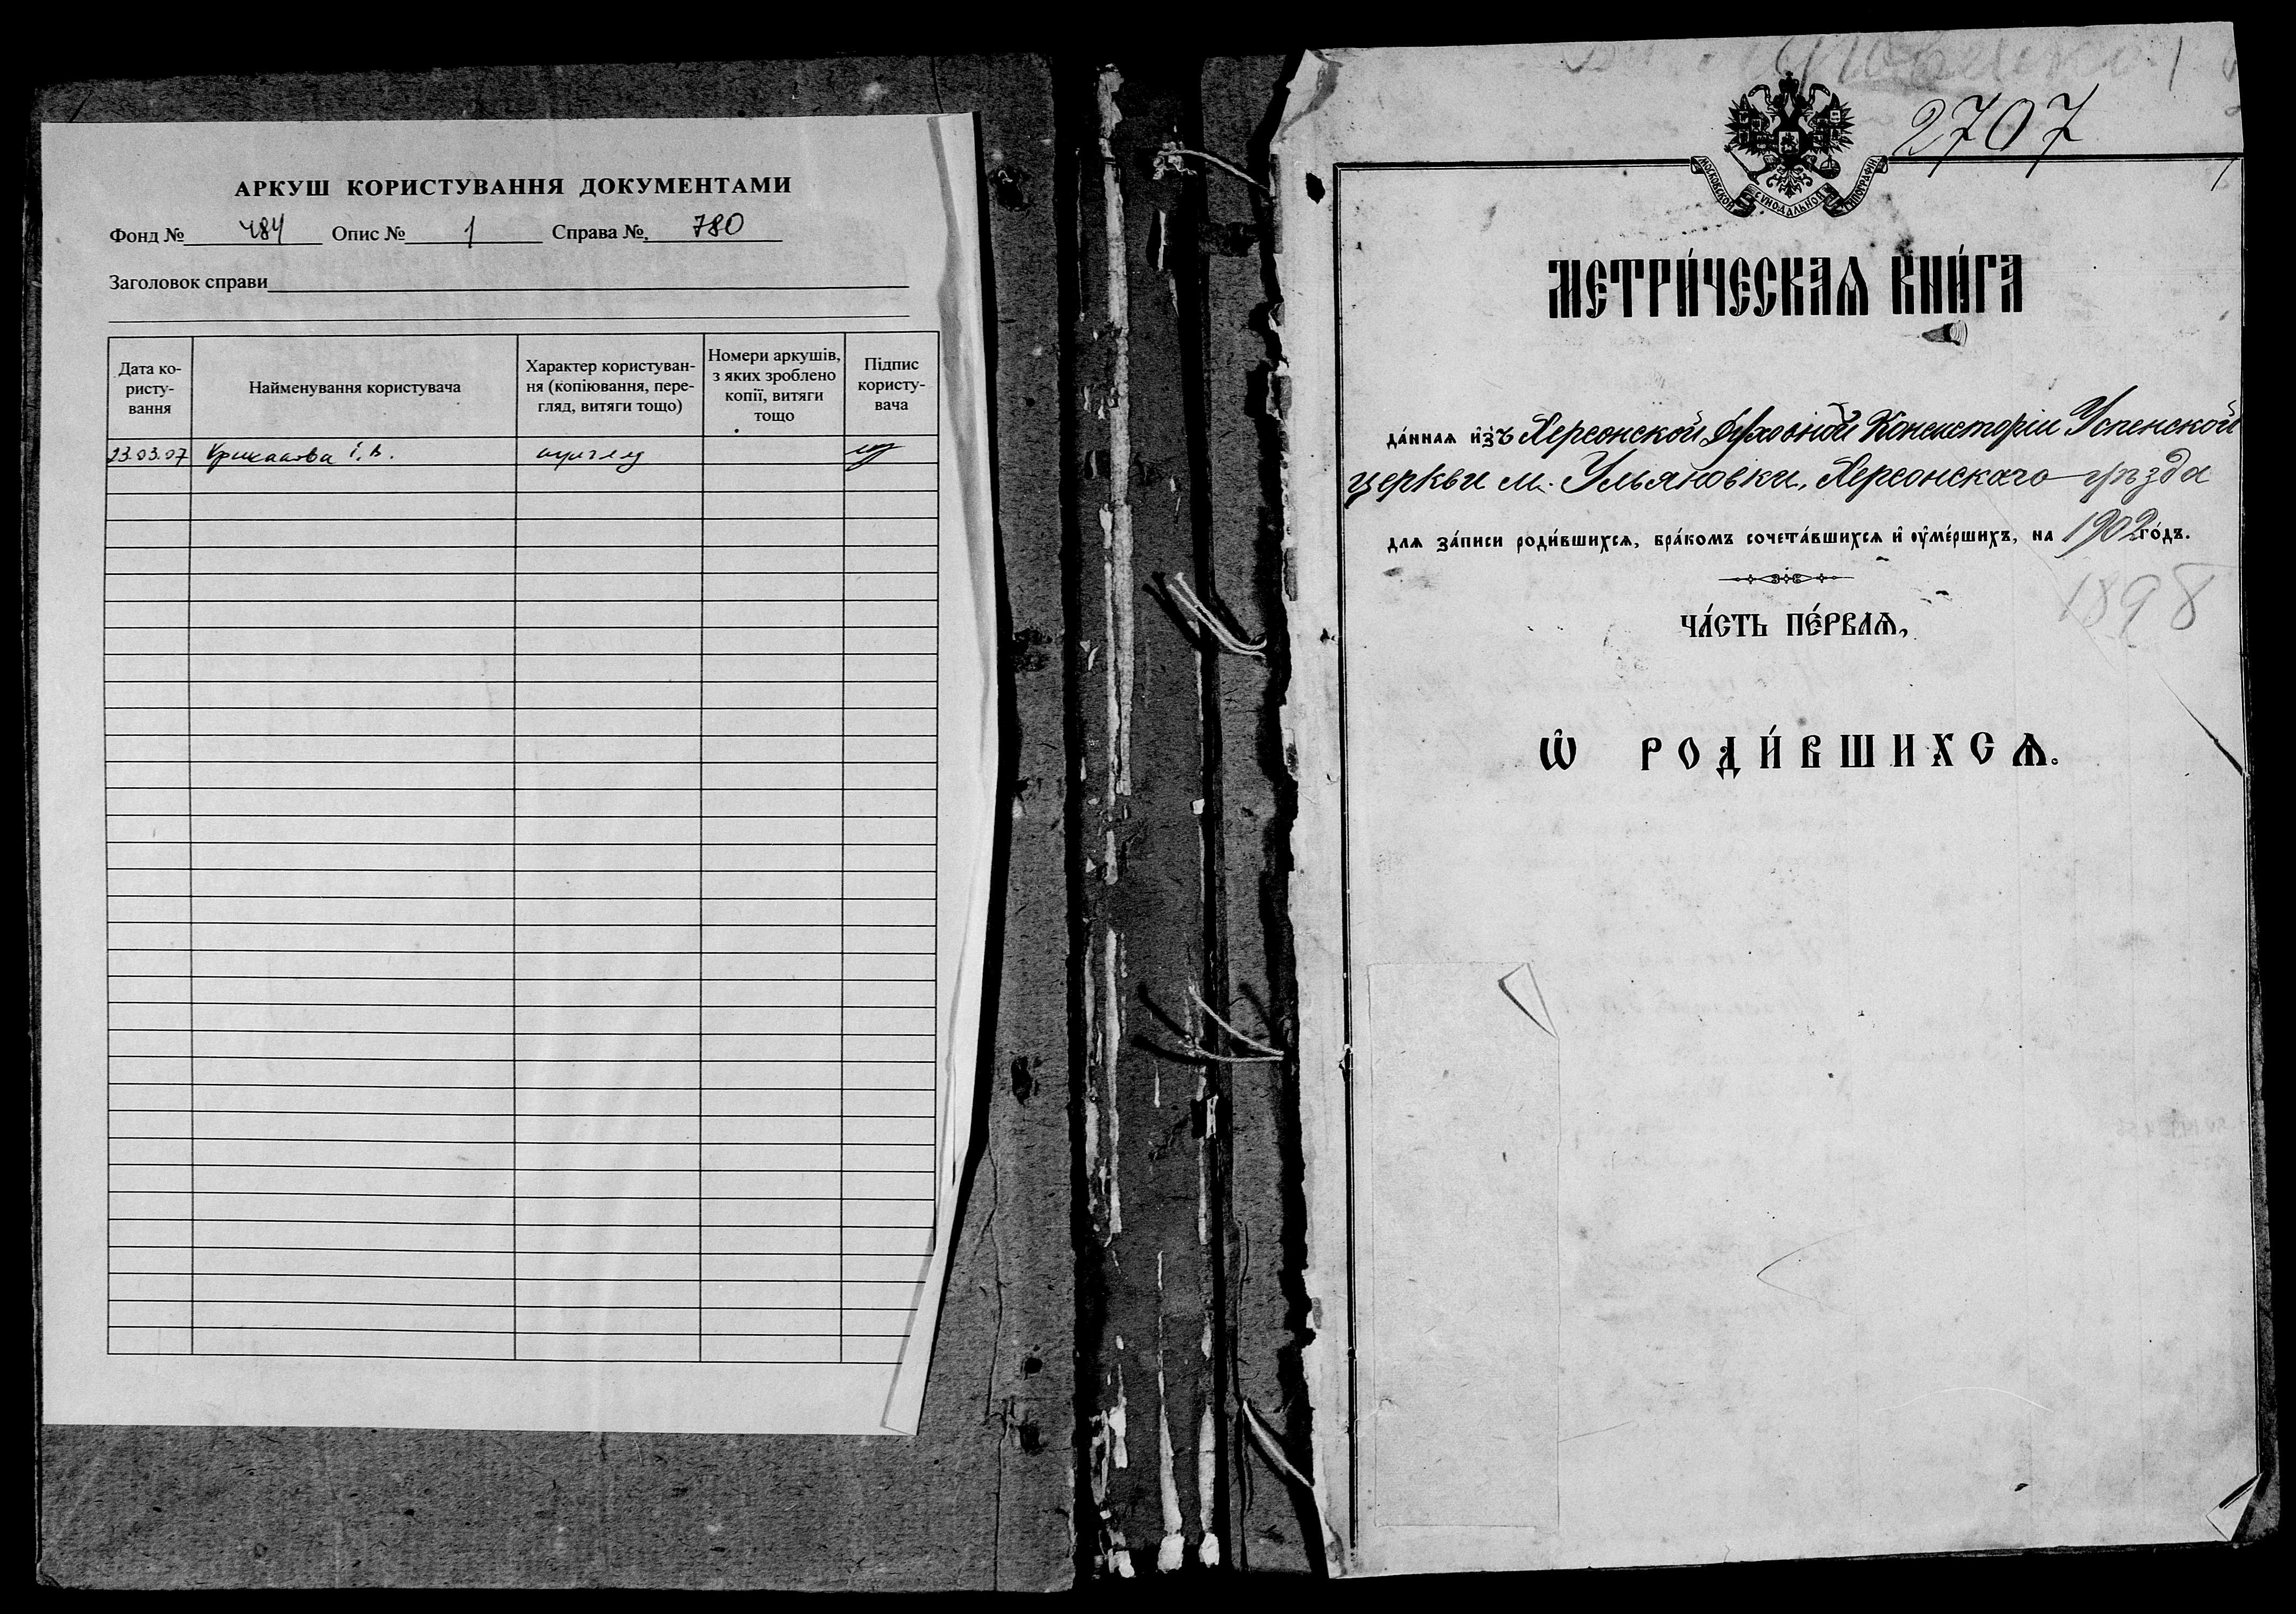 АРКУШ КОРИСТУВАННЯ ДОКУМЕНТАМИ
Фонд № 484 Опис № 1 Справа № 780
Заголовок справи
Дата ко-
ристу-
вання
Найменування користувача
Характер користуван-
ня (копіювання, пере-
гляд, витяги тощо)
Номери аркушів,
з яких зроблено
копії, витяги
тощо
Підпис
користу-
вача
23.03.07 І. В.
2707
МОСКОВСКОЙ СѴНОДАЛЬНОЙ ТИПОГРАФІИ
1
МЕТРИ́ЧЕСКАѦ КНИ́ГА
да́ннаѧ и҆зъ Херсонской Духовной Консисторіи Успенской
церкви м. Ульяновки, Херсонскаго уѣзда
длѧ за́писи роди́вшихсѧ, бра́комъ сочета́вшихсѧ и҆ ᲂу҆ме́ршихъ, на 1902 го́дъ.
1898
ЧА́СТЬ ПЕ́РВАѦ,
Ѽ РОДИ́ВШИХСѦ.